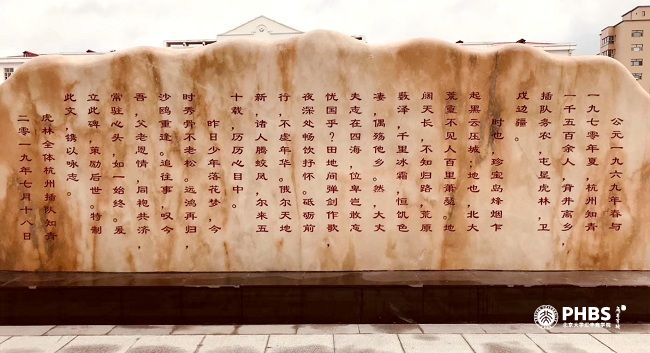 公元一九六九年春与
一九七零年夏,杭州知青
一千五百余人,背井离乡,
插队务农,屯垦虎林,卫
戍边疆。
时也,珍宝岛烽烟乍
起黑云压城;地也,北大
荒不见人百里萧瑟。地
阔天长,不知归路,荒原
薮泽,千里冰霜,恒饥色
凄,偶殇他乡。然,大丈
夫志在四海,位卑岂敢忘
忧国乎?田地间弹剑作歌,
夜深处畅饮抒怀。砥砺前
行,不虚年华。俄尔天地
新,诸人腾蛟凤,尔来五
十载,历历心目中。
昨日少年落花梦,今
时秀骨不老松。远鸿再归,
沙鸥重逢。追往事,叹今
吾,父老恩情,同袍共济,
常驻心头,如一始终。爰
立此碑,策励后世。特制
此文,镌以咏志。
虎林全体杭州插队知青
二零一九年七月十八日
PHBS
北京大学汇丰商学院